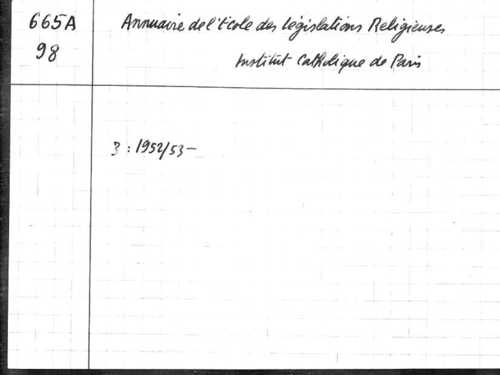 665A
98
Annuaire de l'Ecole des Législations Religieuses
Institut Catholique de Paris
3 : 1952/53-